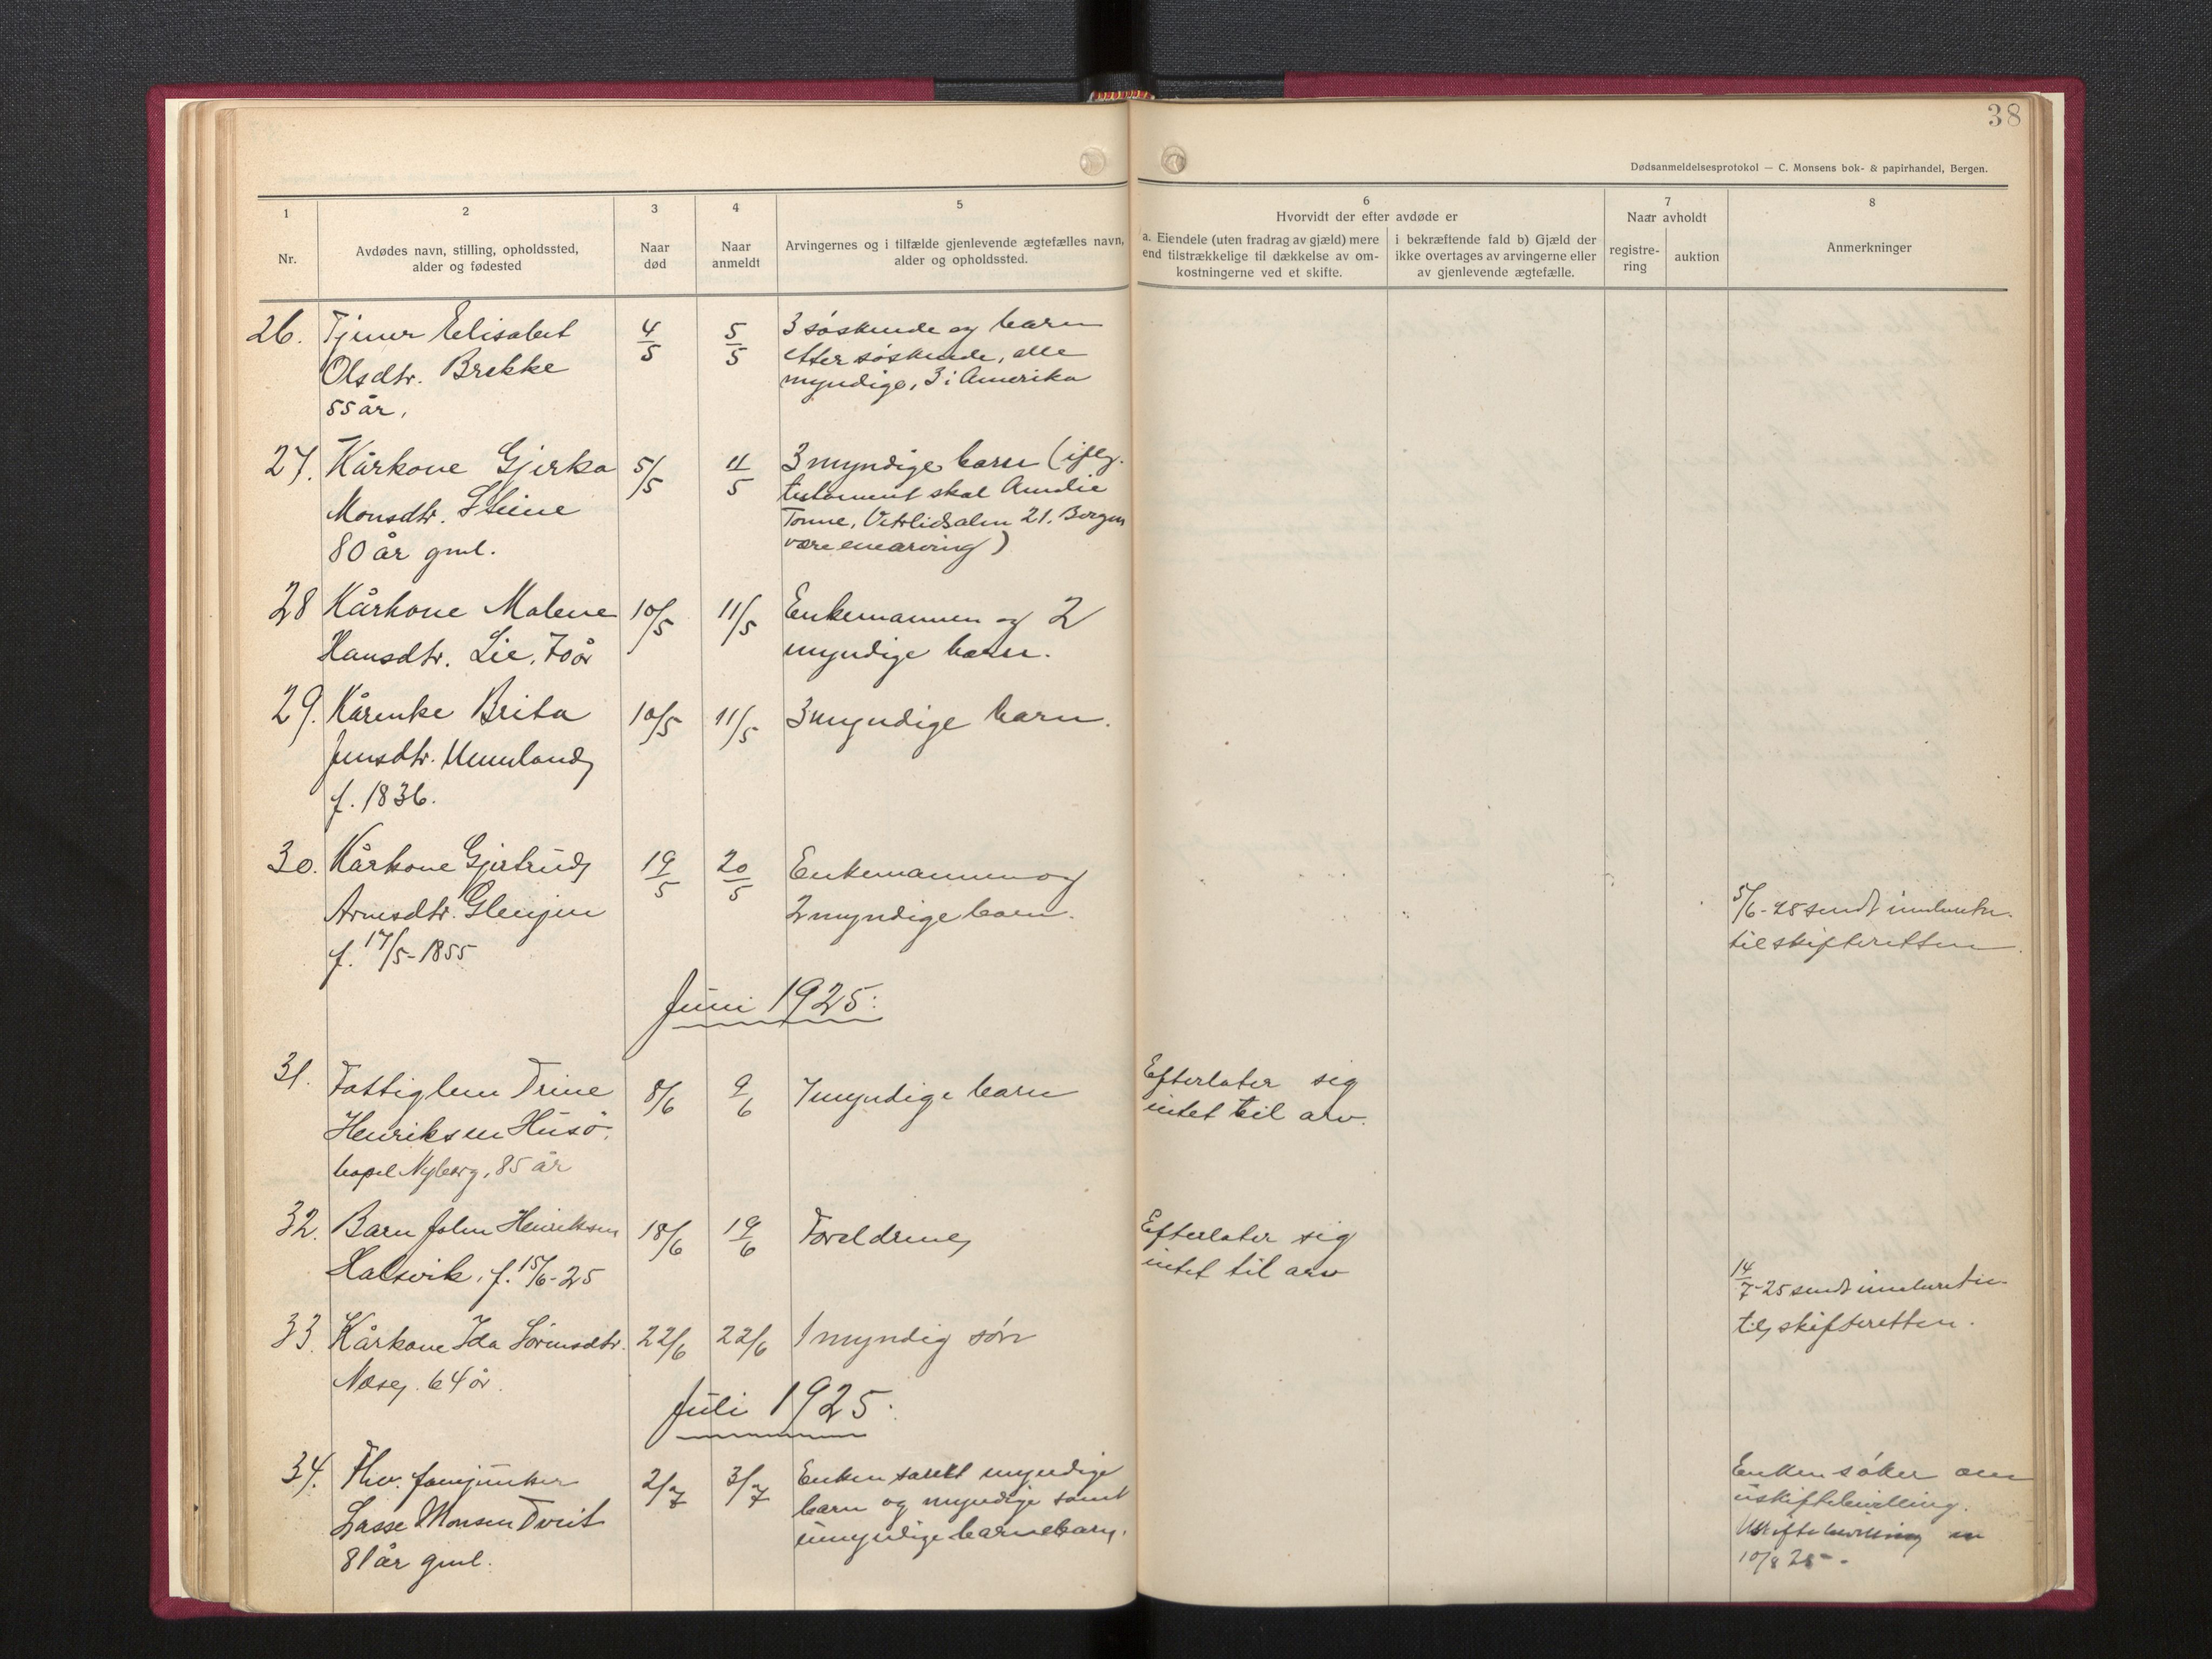 38
Dødsanmeldelsesprotokol — C. Monsens bok- & papirhandel, Bergen.
1
2
3
4
5
6
7
8
Nr.
Avdødes navn, stilling, opholdssted,
alder og fødested
Naar
død
Naar
anmeldt
Arvingernes og i tilfælde gjenlevende ægtefælles navn,
alder og opholdssted.
Hvorvidt der efter avdøde er
a. Eiendele (uten fradrag av gjæld) mere
end tilstrækkelige til dækkelse av om-
kostningerne ved et skifte.
i bekræftende fald b) Gjæld der
ikke overtages av arvingerne eller
av gjenlevende ægtefælle.
Naar avholdt
registre-
ring
auktion
Anmerkninger
26. Tjener Elisabet 4/5 5/5 3 søskende og barn
Olsdtr. Brekke etter søskende, alle
55 år, myndige, 3 i Amerika
27. Kårkone Gjerka 5/5 11/5 3 myndige barn (iflg.
Monsdtr. Steine testament skal Amalie
80 år gml. Tonne, Vetrlidsalm 21. Bergen
være enearving)
28 Kårkone Malene 10/5 11/5 Enkemannen og 2
Hansdtr. Lie, 70 år myndige barn.
29. Kårenke Brita 10/5 11/5 3 myndige barn.
Jensdtr.
f. 1836.
30. Kårkone Gjertrud 19/5 20/5 Enkemannen og
Arnesdtr. Glenjen 2 myndige barn.
f. 17/5-1855
5/6-25 sendt innberetn.
til skifteretten.
Juni 1925:
31. Fattiglem Trine 8/6 9/6 7 myndige barn Efterlater sig
Henriksen Husø, intet til arv.
Nyborg, 85 år
32. Barn John Henriksen 18/6 19/6 Foreldrene Efterlater sig
Halsvik, f. 15/6-25 intet til arv
33. Kårkone Ida Sørensdtr. 22/6 22/6 1 myndig søn
Næse, 64 år.
14/7-25 sendt innberetn.
til skifteretten.
Juli 1925.
34. Fhv. fanejunker 2/7 3/7 Enken samt myndige
Lasse Monsen Tveit barn og myndige samt
81 år gml. umyndige barnebarn.
Enken søker om
uskiftebevilling.
Uskiftebevilling
10/8 25 -.